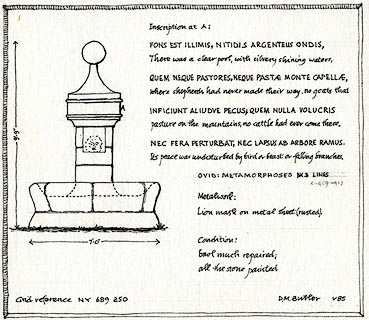 Inscription at A:
FONS EST ILLIMIS, NITIDIS ARGENTEUS ONDIS,
There was a clear pool, with silvery shining waters,
QUEM NEQUE PASTORES, NEQUE PASTÆ MONTE CAPELLÆ,
where shepherds had never made their way, no goats that
INFICIUNT ALIUDVE PECUS; QUEM NULLA VOLUCRIS
pasture on the mountains, no cattle had ever come there.
NEC FERA PERTURBAT, NEC LAPSUS AB ARBORE RAMUS.
Its peace was undisturbed by bird or beast or falling branches.
OVID: METAMORPHOSES BK3 LINES
A
Metalwork:
Lion mask on metal sheet (rusted).
Condition:
bowl much repaired;
all the stone painted
7'.0"
Grid reference NY 689 250
D.M. Butler
V85